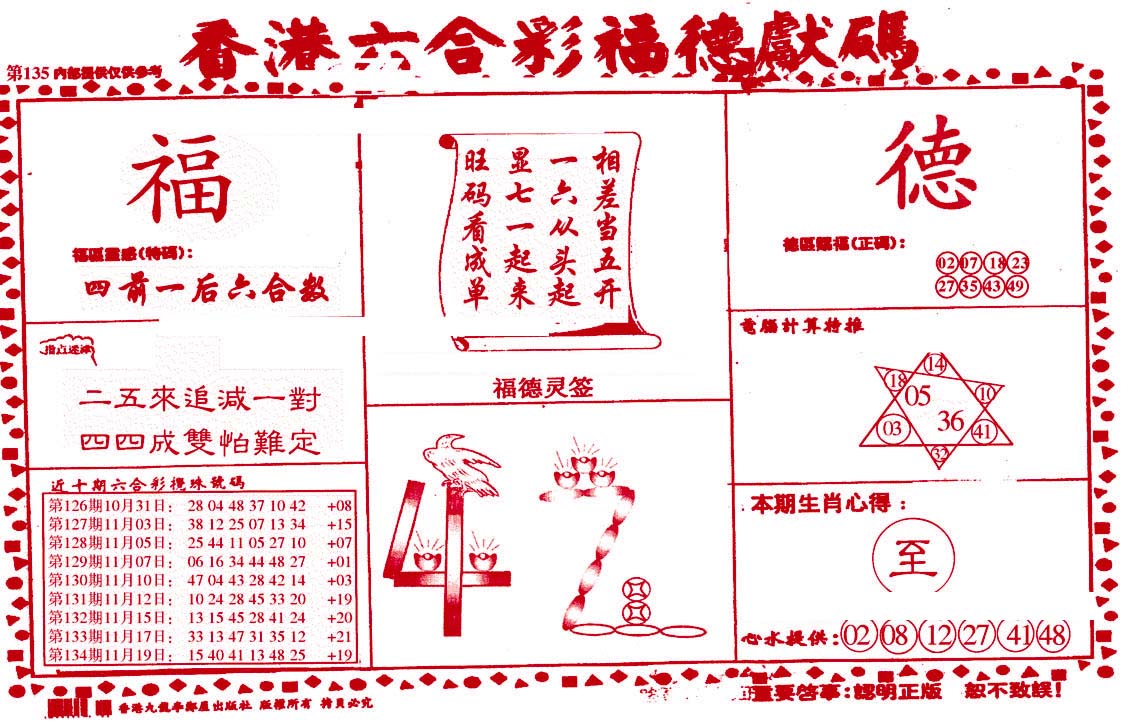 香港六合彩福德獻碼
第135 內部提供仅供参考
福
福區靈感(特碼):
四前一后六合数
指点迷津
二五來追減一對
四四成雙怕難定
近十期六合彩攪珠號碼
第126期10月31日: 28 04 48 37 10 42 +08
第127期11月03日: 38 12 25 07 13 34 +15
第128期11月05日: 25 44 11 05 27 10 +07
第129期11月07日: 06 16 34 44 48 27 +01
第130期11月10日: 47 04 43 28 42 14 +03
第131期11月12日: 10 24 28 45 33 20 +19
第132期11月15日: 13 15 45 28 41 24 +20
第133期11月17日: 33 13 47 31 35 12 +21
第134期11月19日: 15 40 41 13 48 25 +19
相差当五开
一六从头起
显七一起来
旺码看成单
福德灵签
42
德
德區賜福(正碼):
02 07 18 23
27 35 43 49
電腦計算特推
14
18 05 10
03 36 41
32
本期生肖心得:
至
心水提供:02 08 12 27 41 48
香港九龍 出版社 版權所有 拷貝必究
重要啓事:認明正版 恕不致誤!